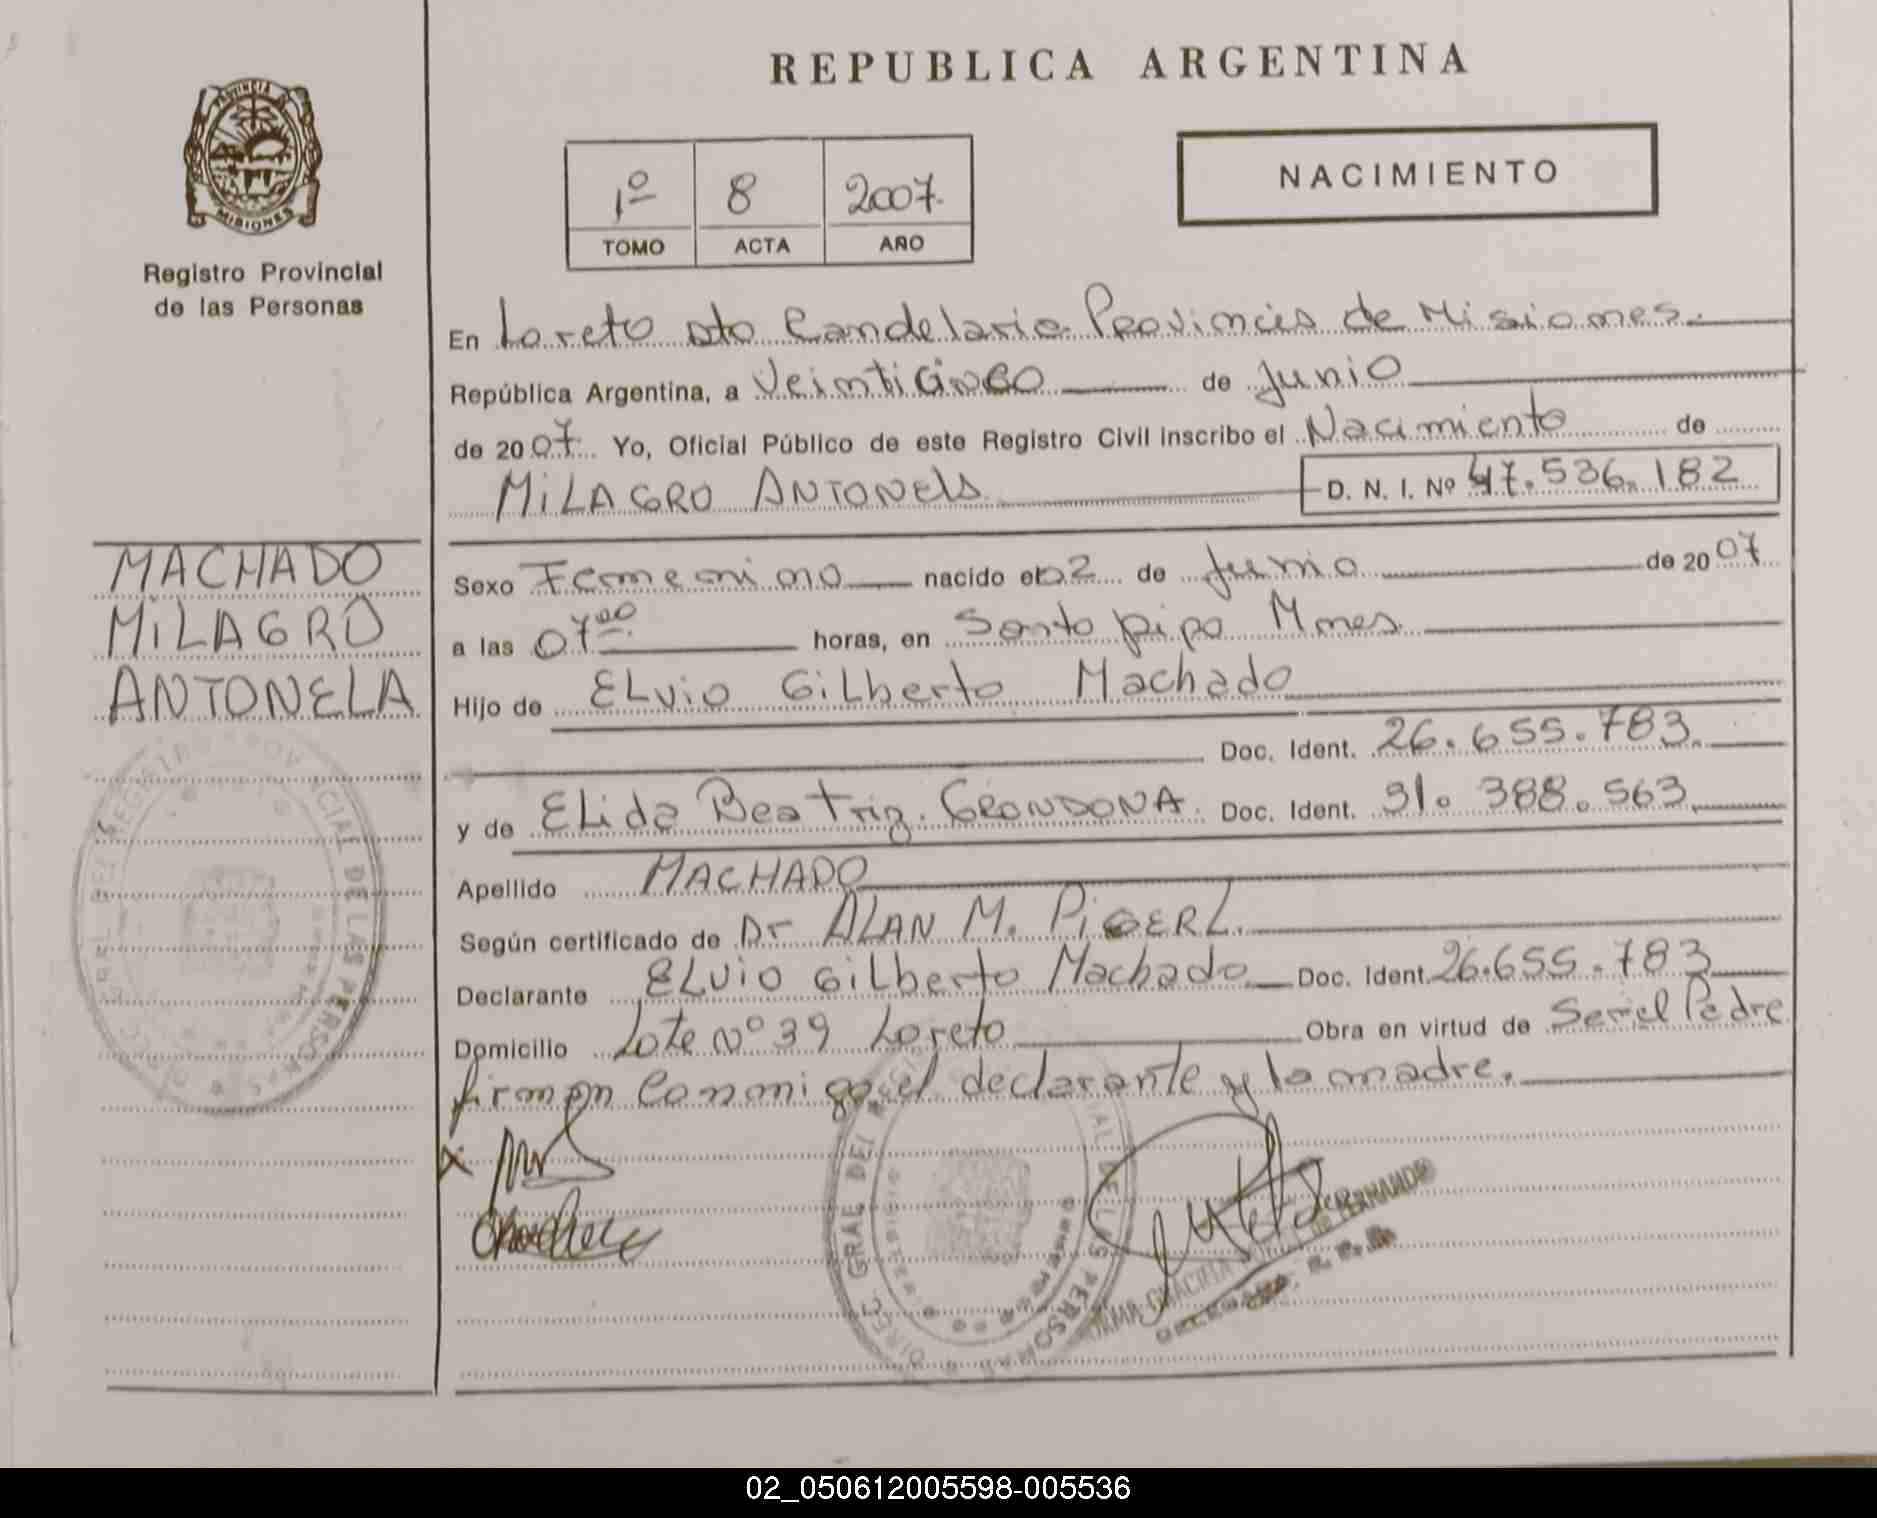 REPUBLICA ARGENTINA
PROVINCIA DE
MISIONES
Registro Provincial
de las Personas
1º 8 2007.
TOMO ACTA AÑO
NACIMIENTO
En Loreto dto Candelaria Provincia de Misiones.
República Argentina, a Veinticinco de Junio
de 2007 Yo, Oficial Público de este Registro Civil inscribo el Nacimiento de
MILAGRO ANTONELA D. N. I. Nº 47.536.182
MACHADO
MILAGRO
ANTONELA
Sexo Femenino nacido el 02 de Junio de 2007
a las 07 00 horas, en Santo pipo Mnes
Hijo de ELvio GiLberto Machado
Doc. Ident. 26.655.783.
y de ELida Beatriz GRONDONA. Doc. Ident. 31.388.563
Apellido MACHADO
Según certificado de Dr ALAN M.
Declarante ELvio GiLberto Machado Doc. Ident. 26.655.783
Domicilio Lote Nº 39 Loreto Obra en virtud de Ser el Padre
firman Conmigo el declarante y la madre.
X
DIREC. GRAL DEL REGISTRO PROVINCIAL DE LAS PERSONAS
DIREC. GRAL DEL REGISTRO PROVINCIAL DE LAS PERSONAS
FERNANDO
02_050612005598-005536